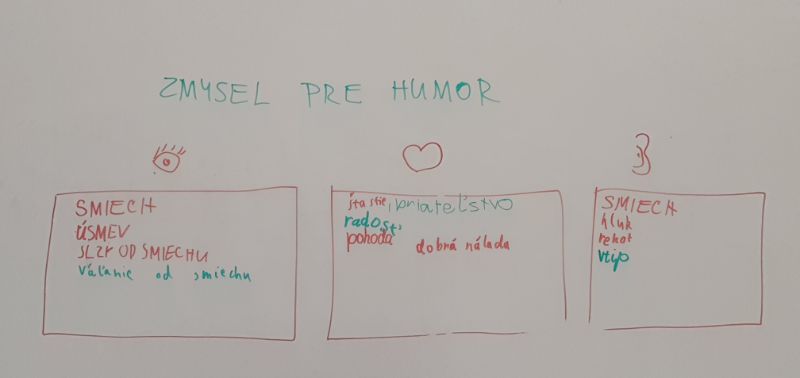 ZMYSEL PRE HUMOR
SMIECH
ÚSMEV
SLZY OD SMIECHU
Váľanie od smiechu
šťastie, priateľstvo
radosť,
pohoda
dobrá nálada
SMIECH
hluk
rehot
vtip